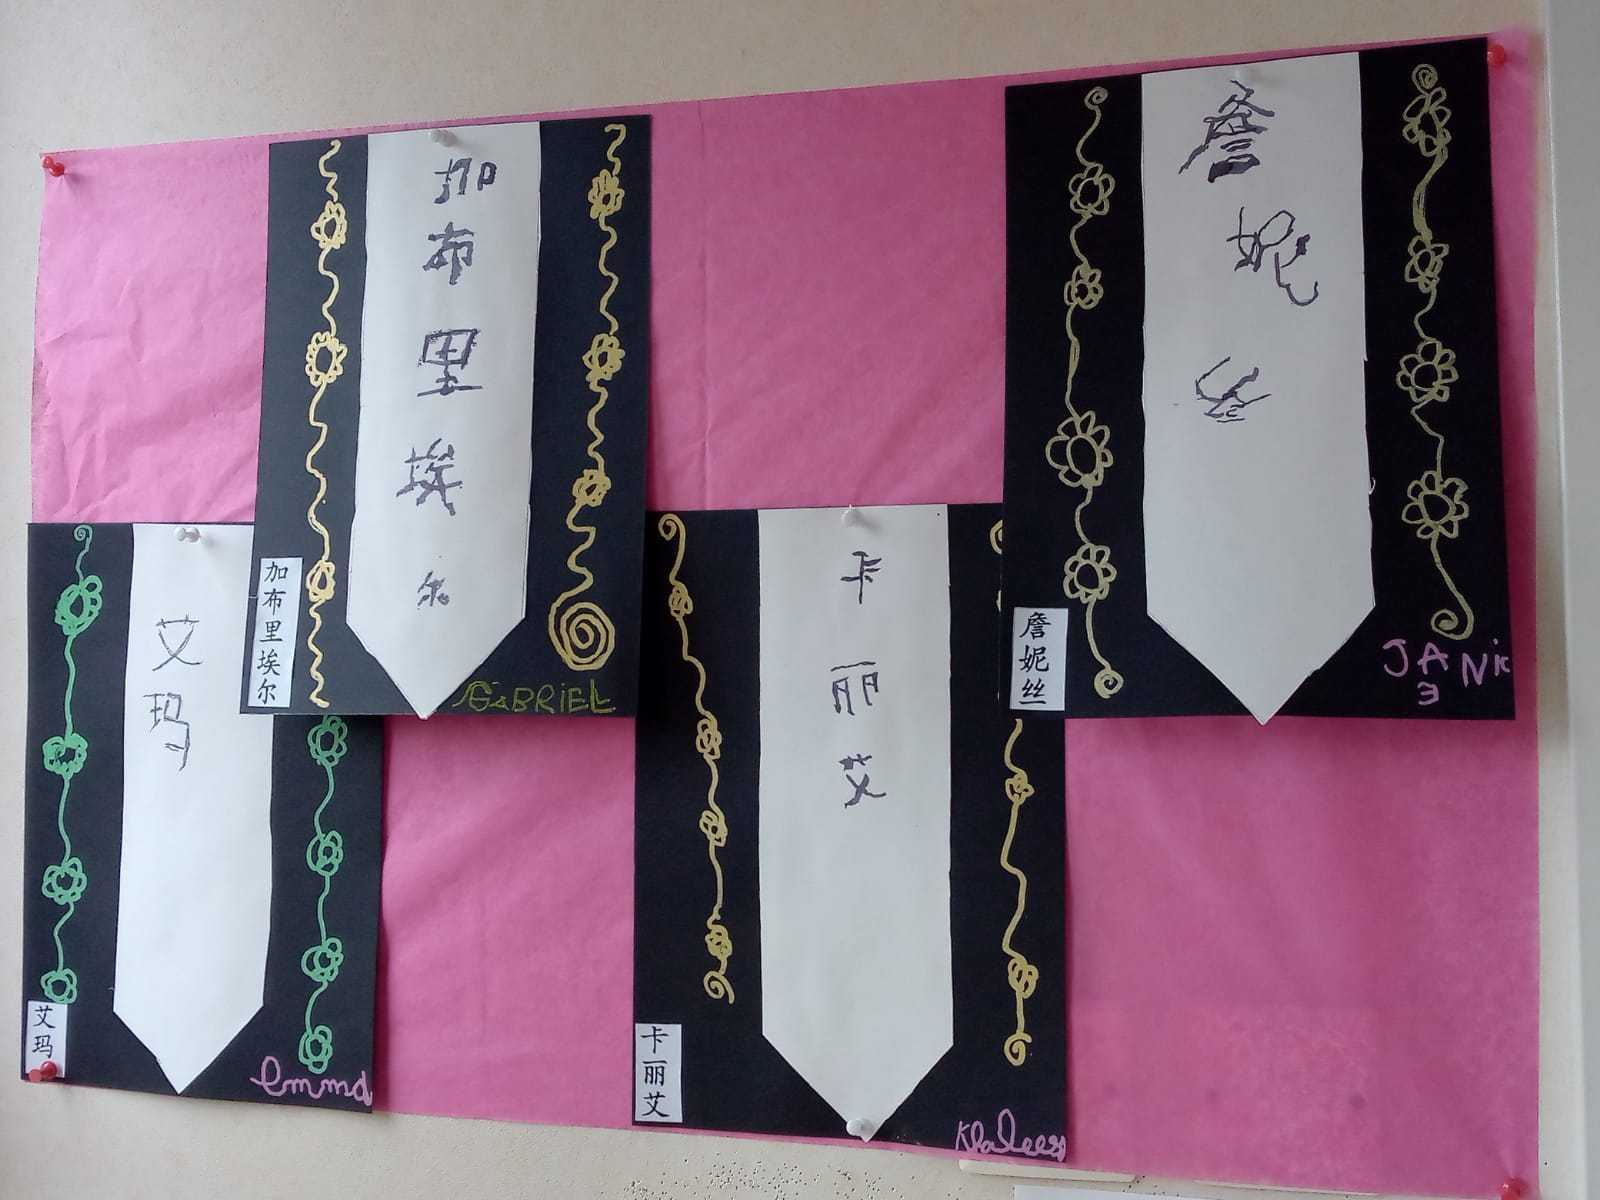 加布里埃尔
加布里埃尔
GABRIEL
詹妮丝
詹妮丝
JANic
E
艾玛
艾玛
emma
卡丽艾
卡丽艾